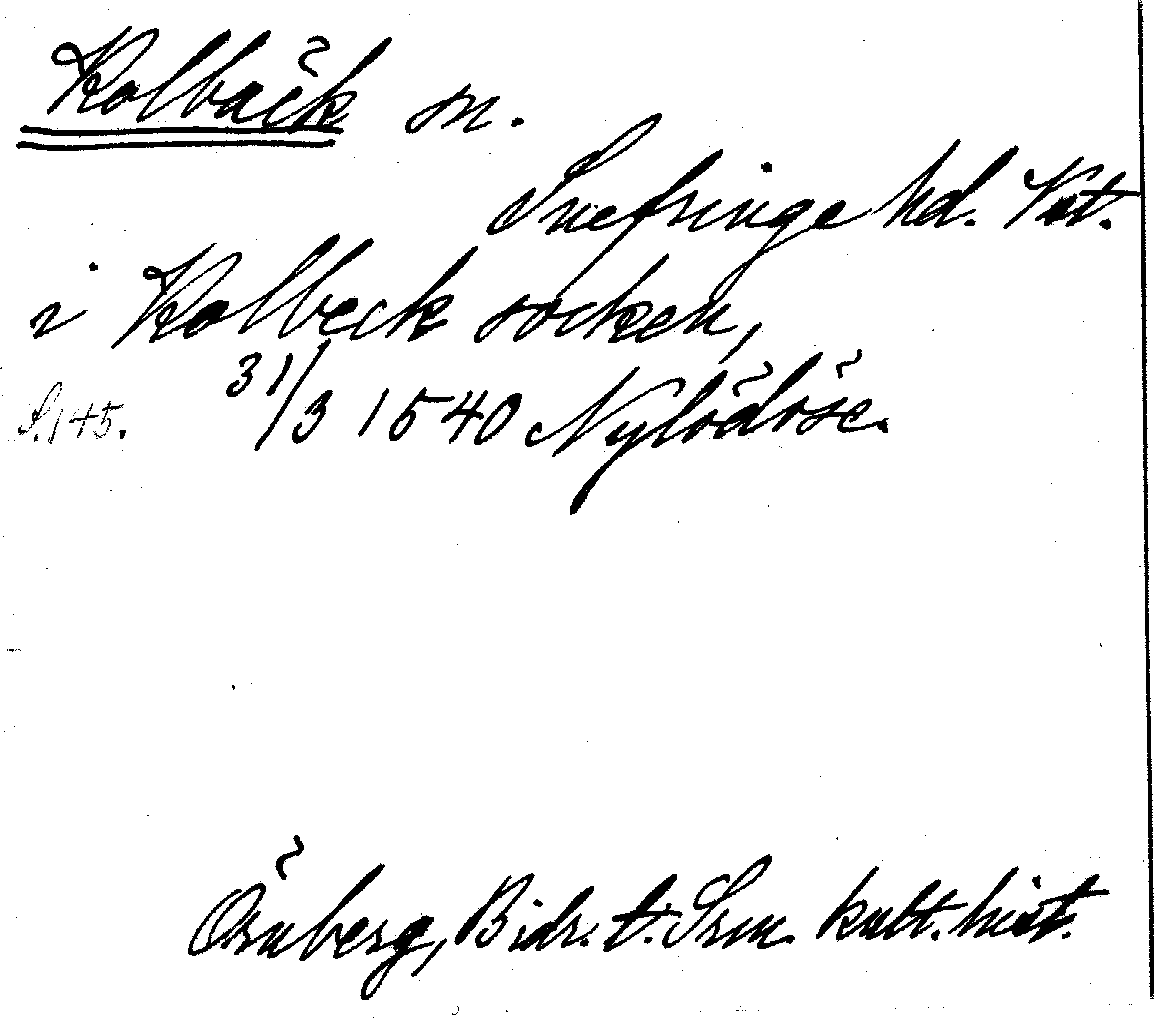 Kolbäck sn.
Snefringe hd. Vst.
i Kolbeck socken,
S. 145. 31/3 1540 Nylödöse.
Örnberg, Bidr. t. Srm. kult. hist.